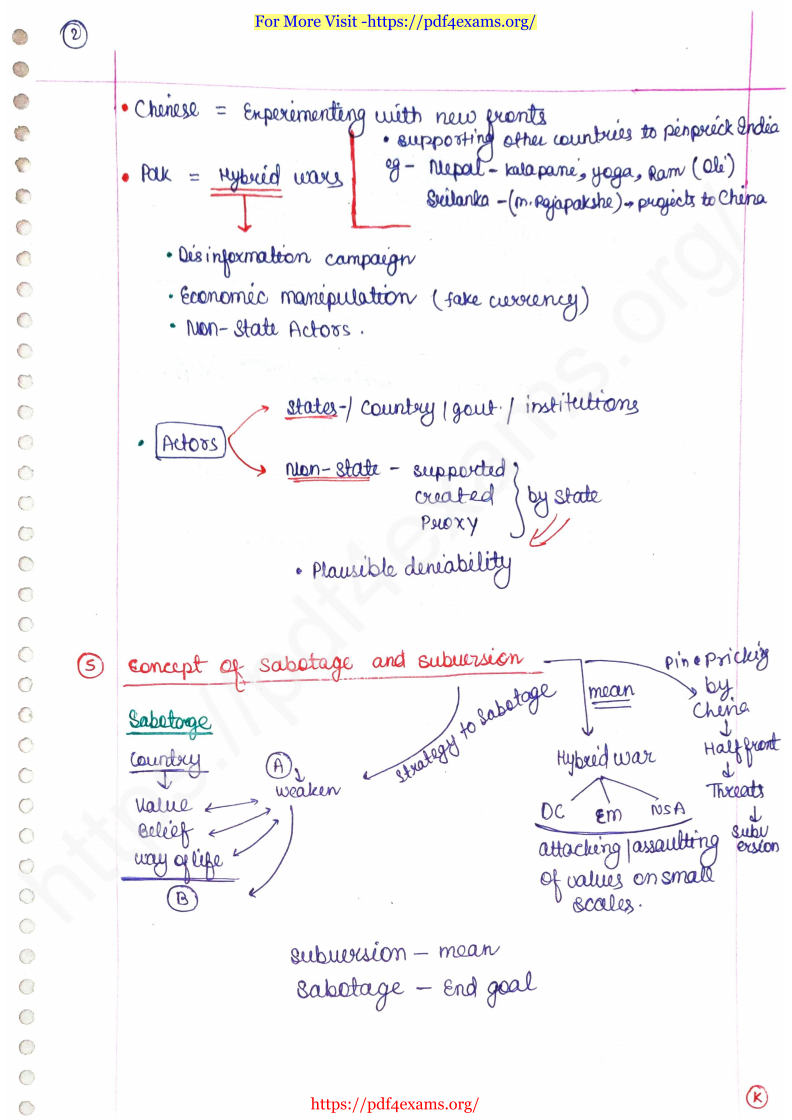 For More Visit -https://pdf4exams.org/
2
• Chinese = Experimenting with new fronts
• supporting other countries to pinprick India
eg - Nepal - Kalapani, yoga, Ram (Oli)
Srilanka - (M. Rajapakshe) → projects to China
• Pak = Hybrid wars
• Disinformation campaign
• Economic manipulation (fake currency)
• Non-State Actors.
• Actors
States-/ Country / govt. / institutions
Non-State - supported
created
Proxy
by state
• Plausible deniability
5 Concept of Sabotage and subversion
Sabotage
Country
Value
Belief
way of life
B
A
weaken
Strategy to Sabotage
mean
Hybrid war
DC EM NSA
attacking / assaulting
of values on small
scales.
Pin Pricking
by
China
Half front
Threats
Subv
ersion
subversion - mean
Sabotage - End goal
K
https://pdf4exams.org/
https://pdf4exams.org/